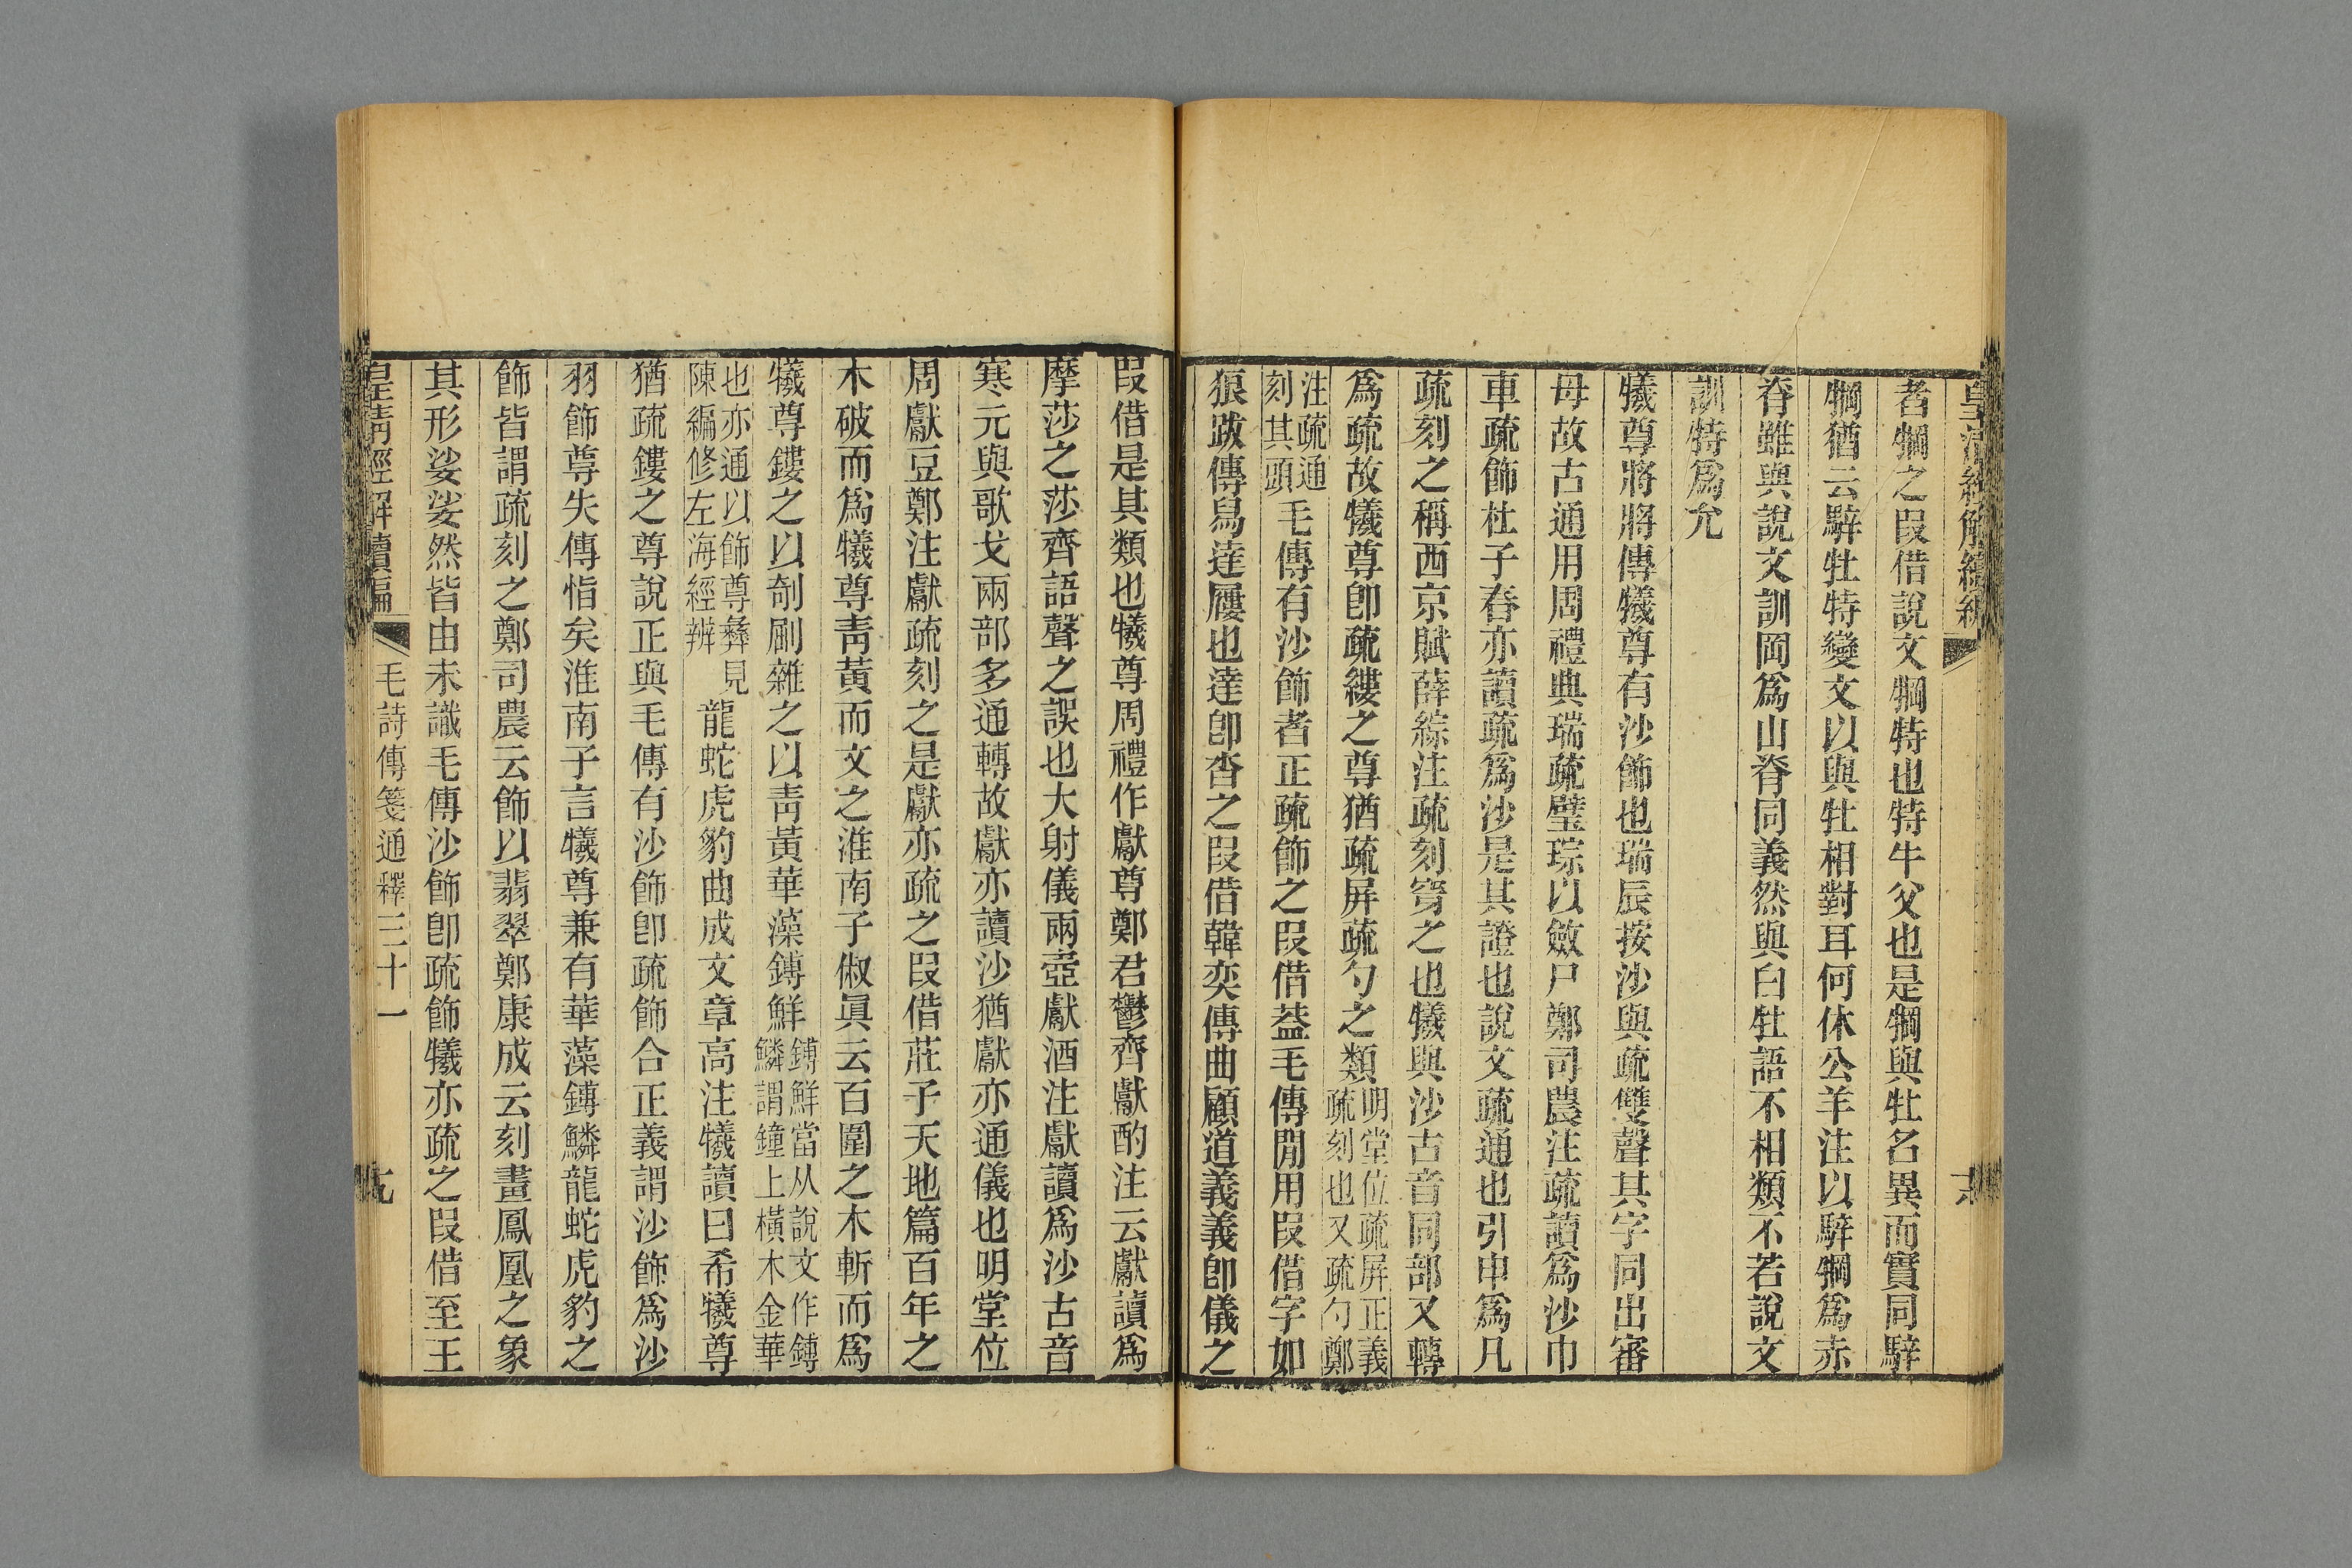 皇淸經解續編
者犅之叚借說文犅特也特牛父也是犅與牡名異而實同騂
犅猶云騂牡特變文以與牡相對耳何休公羊注以騂犅爲赤
脊雖與說文訓岡爲山脊同義然與白牡語不相類不若說文
訓特爲允
犧尊將將傳犧尊有沙飾也瑞辰按沙與疏雙聲其字同出審
母故古通用周禮典瑞疏璧琮以斂尸鄭司農注疏讀爲沙巾
車疏飾杜子春亦讀疏爲沙是其證也說文疏通也引申爲凡
疏刻之稱西京賦薛綜注疏刻穿之也犧與沙古音同部又轉
爲疏故犧尊卽疏鏤之尊猶疏屏疏勺之類明堂位疏屏正義疏刻也又疏勺鄭
注疏通刻其頭毛傳有沙飾者正疏飾之叚借葢毛傳閒用叚借字如
狼跋傳舄達屨也達卽沓之叚借韓奕傳曲顧道義義卽儀之
叚借是其類也犧尊周禮作獻尊鄭君鬱齊獻酌注云獻讀爲
摩莎之莎齊語聲之誤也大射儀兩壺獻酒注獻讀爲沙古音
寒元與歌戈兩部多通轉故獻亦讀沙猶獻亦通儀也明堂位
周獻豆鄭注獻疏刻之是獻亦疏之叚借莊子天地篇百年之
木破而爲犧尊靑黃而文之淮南子俶眞云百圍之木斬而爲
犧尊鏤之以剞劂雜之以靑黃華藻鎛鮮鎛鮮當从說文作鎛鱗謂鐘上橫木金華
也亦通以飾尊彝見陳編修左海經辨龍蛇虎豹曲成文章高注犧讀曰希犧尊
猶疏鏤之尊說正與毛傳有沙飾卽疏飾合正義謂沙飾爲沙
羽飾尊失傳恉矣淮南子言犧尊兼有華藻鎛鱗龍蛇虎豹之
飾皆謂疏刻之鄭司農云飾以翡翠鄭康成云刻畫鳳凰之象
其形娑娑然皆由未識毛傳沙飾卽疏飾犧亦疏之叚借至王
皇淸經解續編
毛詩傳箋通釋三十一